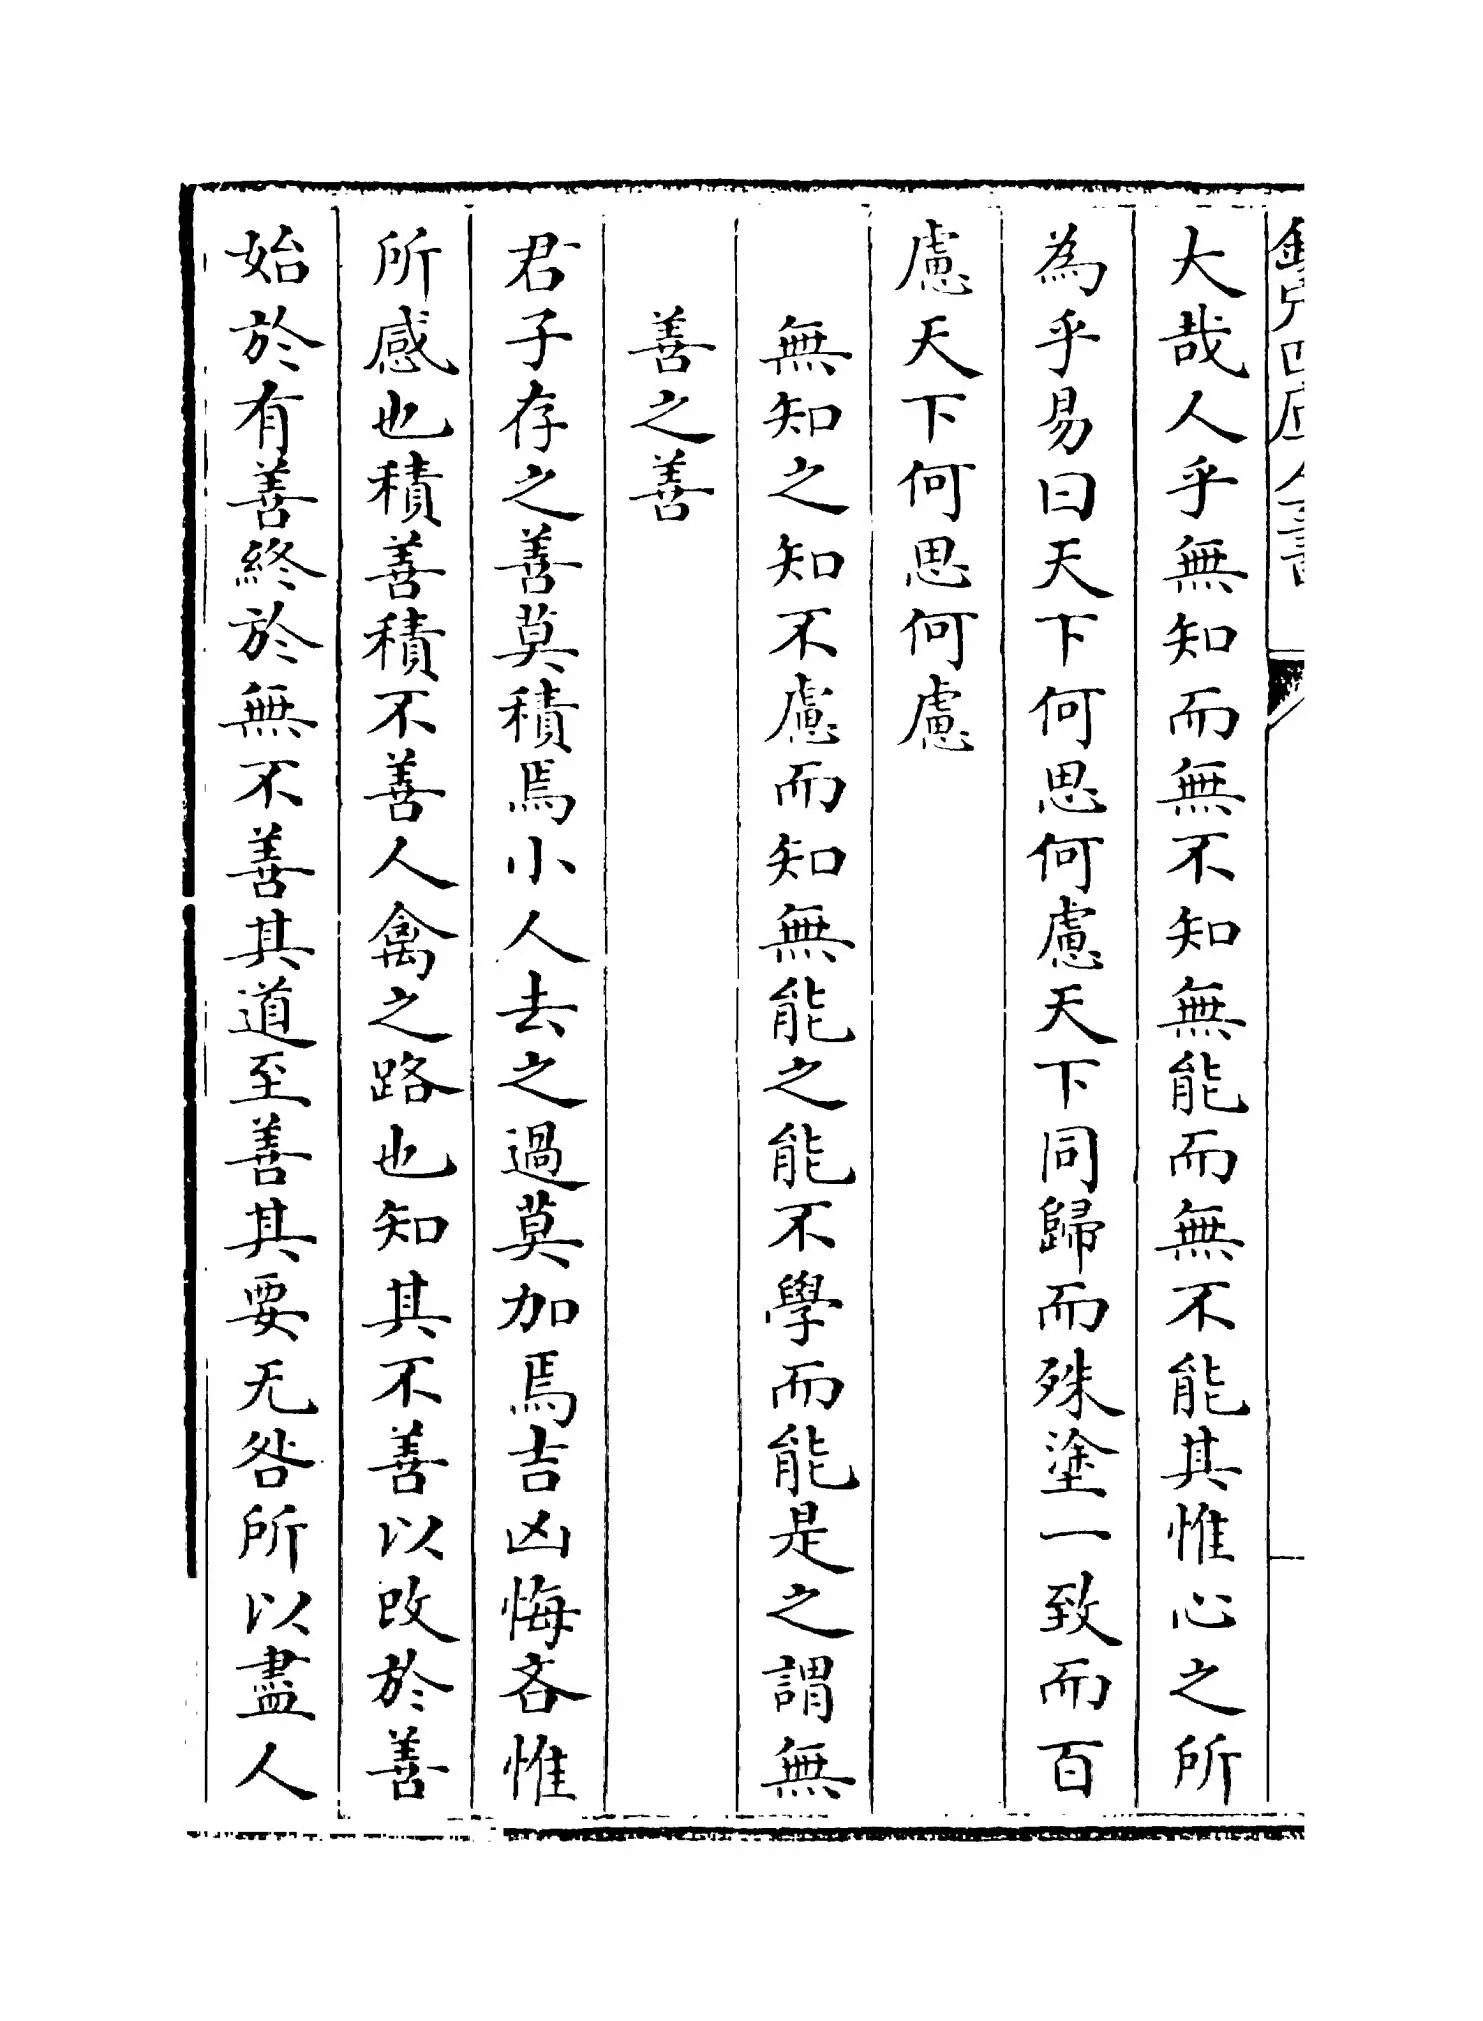 大哉人乎無知而無不知無能而無不能其惟心之所
為乎易曰天下何思何慮天下同歸而殊塗一致而百
慮天下何思何慮
無知之知不慮而知無能之能不學而能是之謂無
善之善
君子存之善莫積焉小人去之過莫加焉吉凶悔吝惟
所感也積善積不善人禽之路也知其不善以改於善
始於有善終於無不善其道至善其要无咎所以盡人